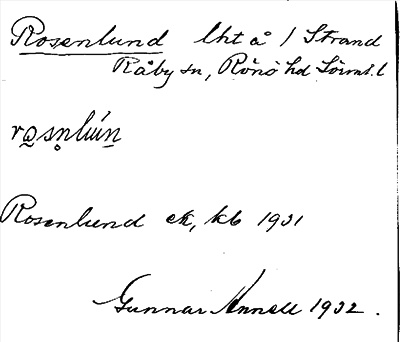 Rosenlund lht å 1 Strand
Råby sn, Rönö hd Sörml. l
rо̲sn̥lún̲
Rosenlund ek, kb 1931
Gunnar Annell 1932.